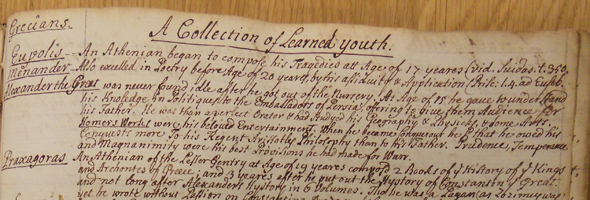 Grecians.
A Collection of Learned youth.
Eupolis - An Athenian began to compose his Tragedies att Age of 17 yeares (vid. Suidas. t. 350.
Menander - Also excelled in Poetry before Age of 20 yeares, by his assiduity & Application
Alexander the Great was never found idle after he got out of the Nursery. At Age of 15 he gave to understand
his Knoledge in Politiques to the Embassadors of Persia, offering to give them audience for
his Father. He was then a perfect Orator & had studyed his Geography & Physick & some
Homers Works were his beloved Entertainment. When he became Conquerour he that he owed his
Conquests more to his Regent Aristotle Philosophy than to his Father. Prudence, Temperance
and Magnanimity were his best provisions he had made for Warr.
Praxagoras. An Athenian of the Lesser Gentry at Age of 19 yeares composed 2 books of ye History of ye Kings
and Archontes of Greece; and 3 yeares after he put out the Hystory of Constantin ye Great.
and not long after Alexanders Hystory in 6 Volumes. Tho he was a Pagan (as Zozimus was
yet he wrote without Passion on Constantine